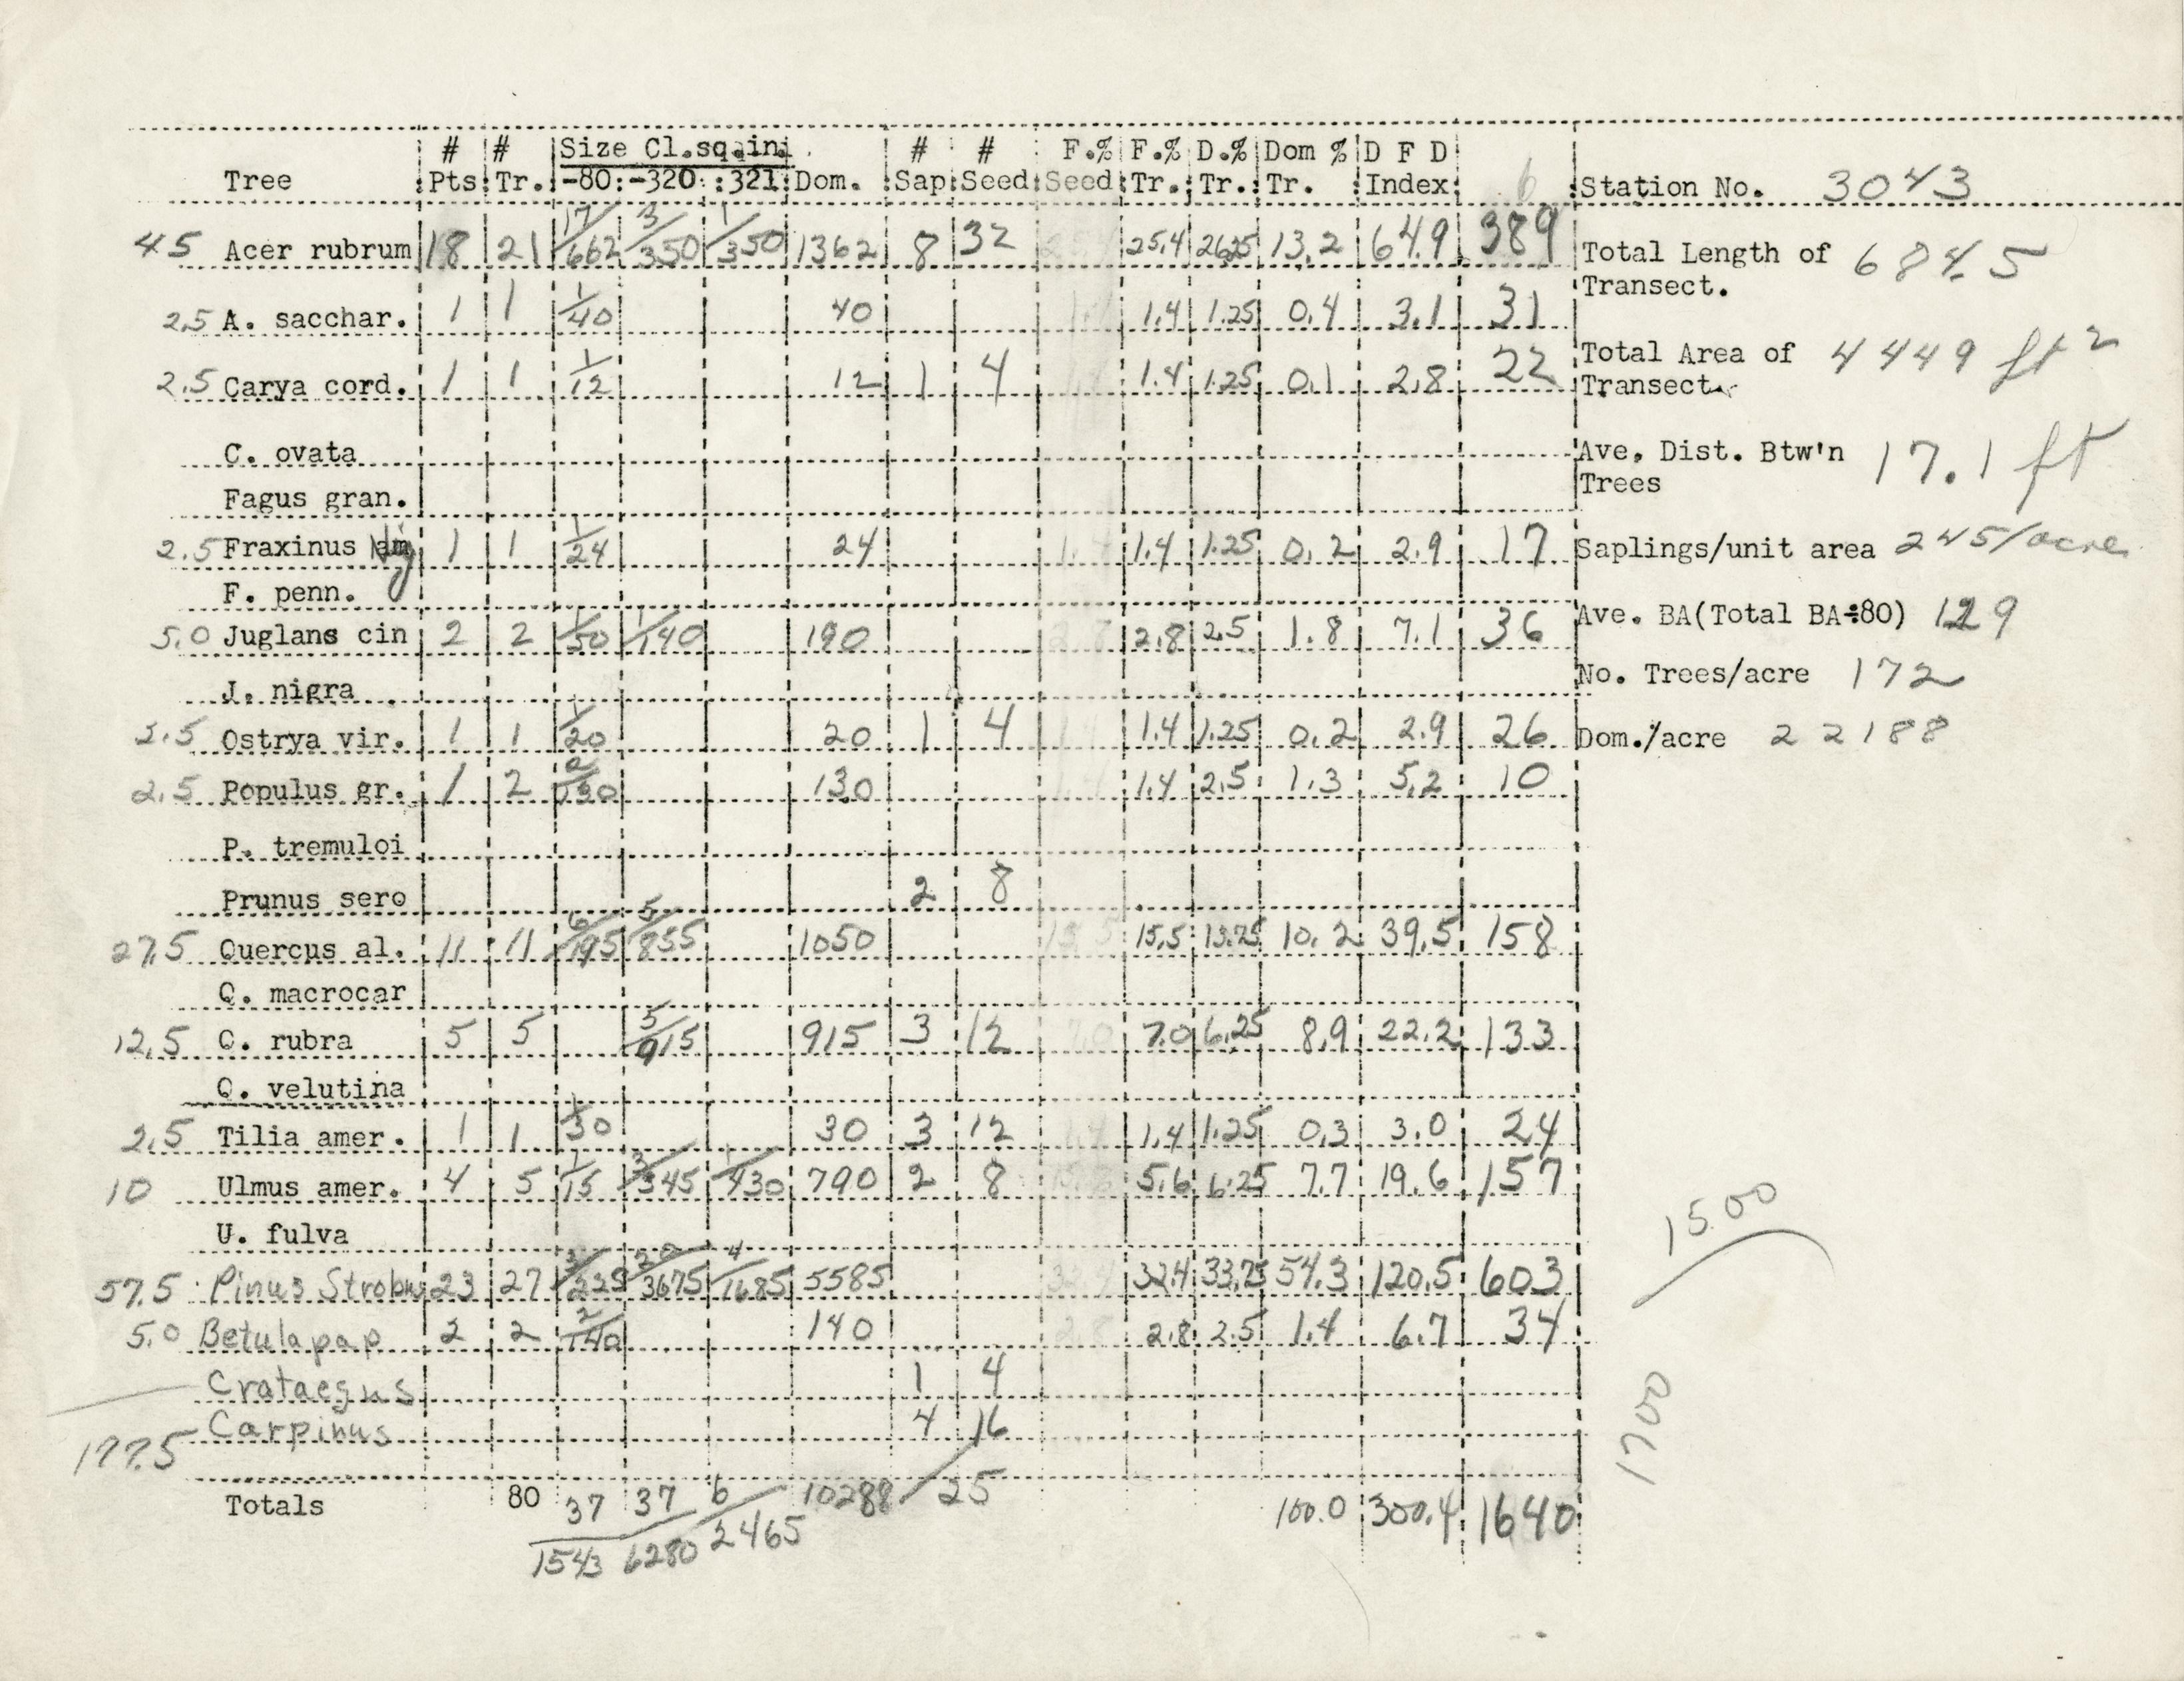 # # Size Cl.sq.in. # # F.% F.% D.% Dom % D F D
Tree Pts Tr. -80 -320 321 Dom. Sap Seed Seed Tr. Tr. Tr. Index 6 Station No. 3043
45 Acer rubrum 18 21 17/662 3/350 1/350 1362 8 32 25.4 26.25 13.2 64.9 389 Total Length of Transect. 684.5
2.5 A. sacchar. 1 1 1/40 40 1.4 1.25 0.4 3.1 31
2.5 Carya cord. 1 1 1/12 12 1 4 1.4 1.25 0.1 2.8 22 Total Area of Transect 4449 ft2
C. ovata Ave. Dist. Btw'n Trees 17.1 ft
Fagus gran.
2.5 Fraxinus Nig 1 1 1/24 24 1.4 1.4 1.25 0.2 2.9 17 Saplings/unit area 245/acre
F. penn.
5.0 Juglans cin 2 2 1/50 1/140 190 2.8 2.8 2.5 1.8 7.1 36 Ave. BA(Total BA÷80) 129
J. nigra No. Trees/acre 172
2.5 Ostrya vir. 1 1 1/20 20 1 4 1.4 1.25 0.2 2.9 26 Dom./acre 22188
2.5 Populus gr. 1 2 2/130 130 1.4 2.5 1.3 5.2 10
P. tremuloi
Prunus sero 2 8
27.5 Quercus al. 11 11 6/195 5/855 1050 15.5 15.5 13.75 10.2 39.5 158
Q. macrocar
12.5 Q. rubra 5 5 5/915 915 3 12 7.0 7.0 6.25 8.9 22.2 133
Q. velutina
2.5 Tilia amer. 1 1 1/30 30 3 12 1.4 1.4 1.25 0.3 3.0 24
10 Ulmus amer. 4 5 1/15 3/345 1/430 790 2 8 5.6 6.25 7.7 19.6 157
U. fulva
57.5 Pinus Strobus 23 27 3/225 20/3675 4/1685 5585 32.4 33.75 54.3 120.5 603
5.0 Betula pap 2 2 2/140 140 2.8 2.8 2.5 1.4 6.7 34
Crataegus 1 4
177.5 Carpinus 4 16
Totals 80 37/1543 37/6280 6/2465 10288 25 100.0 300.4 1640
1500
1700